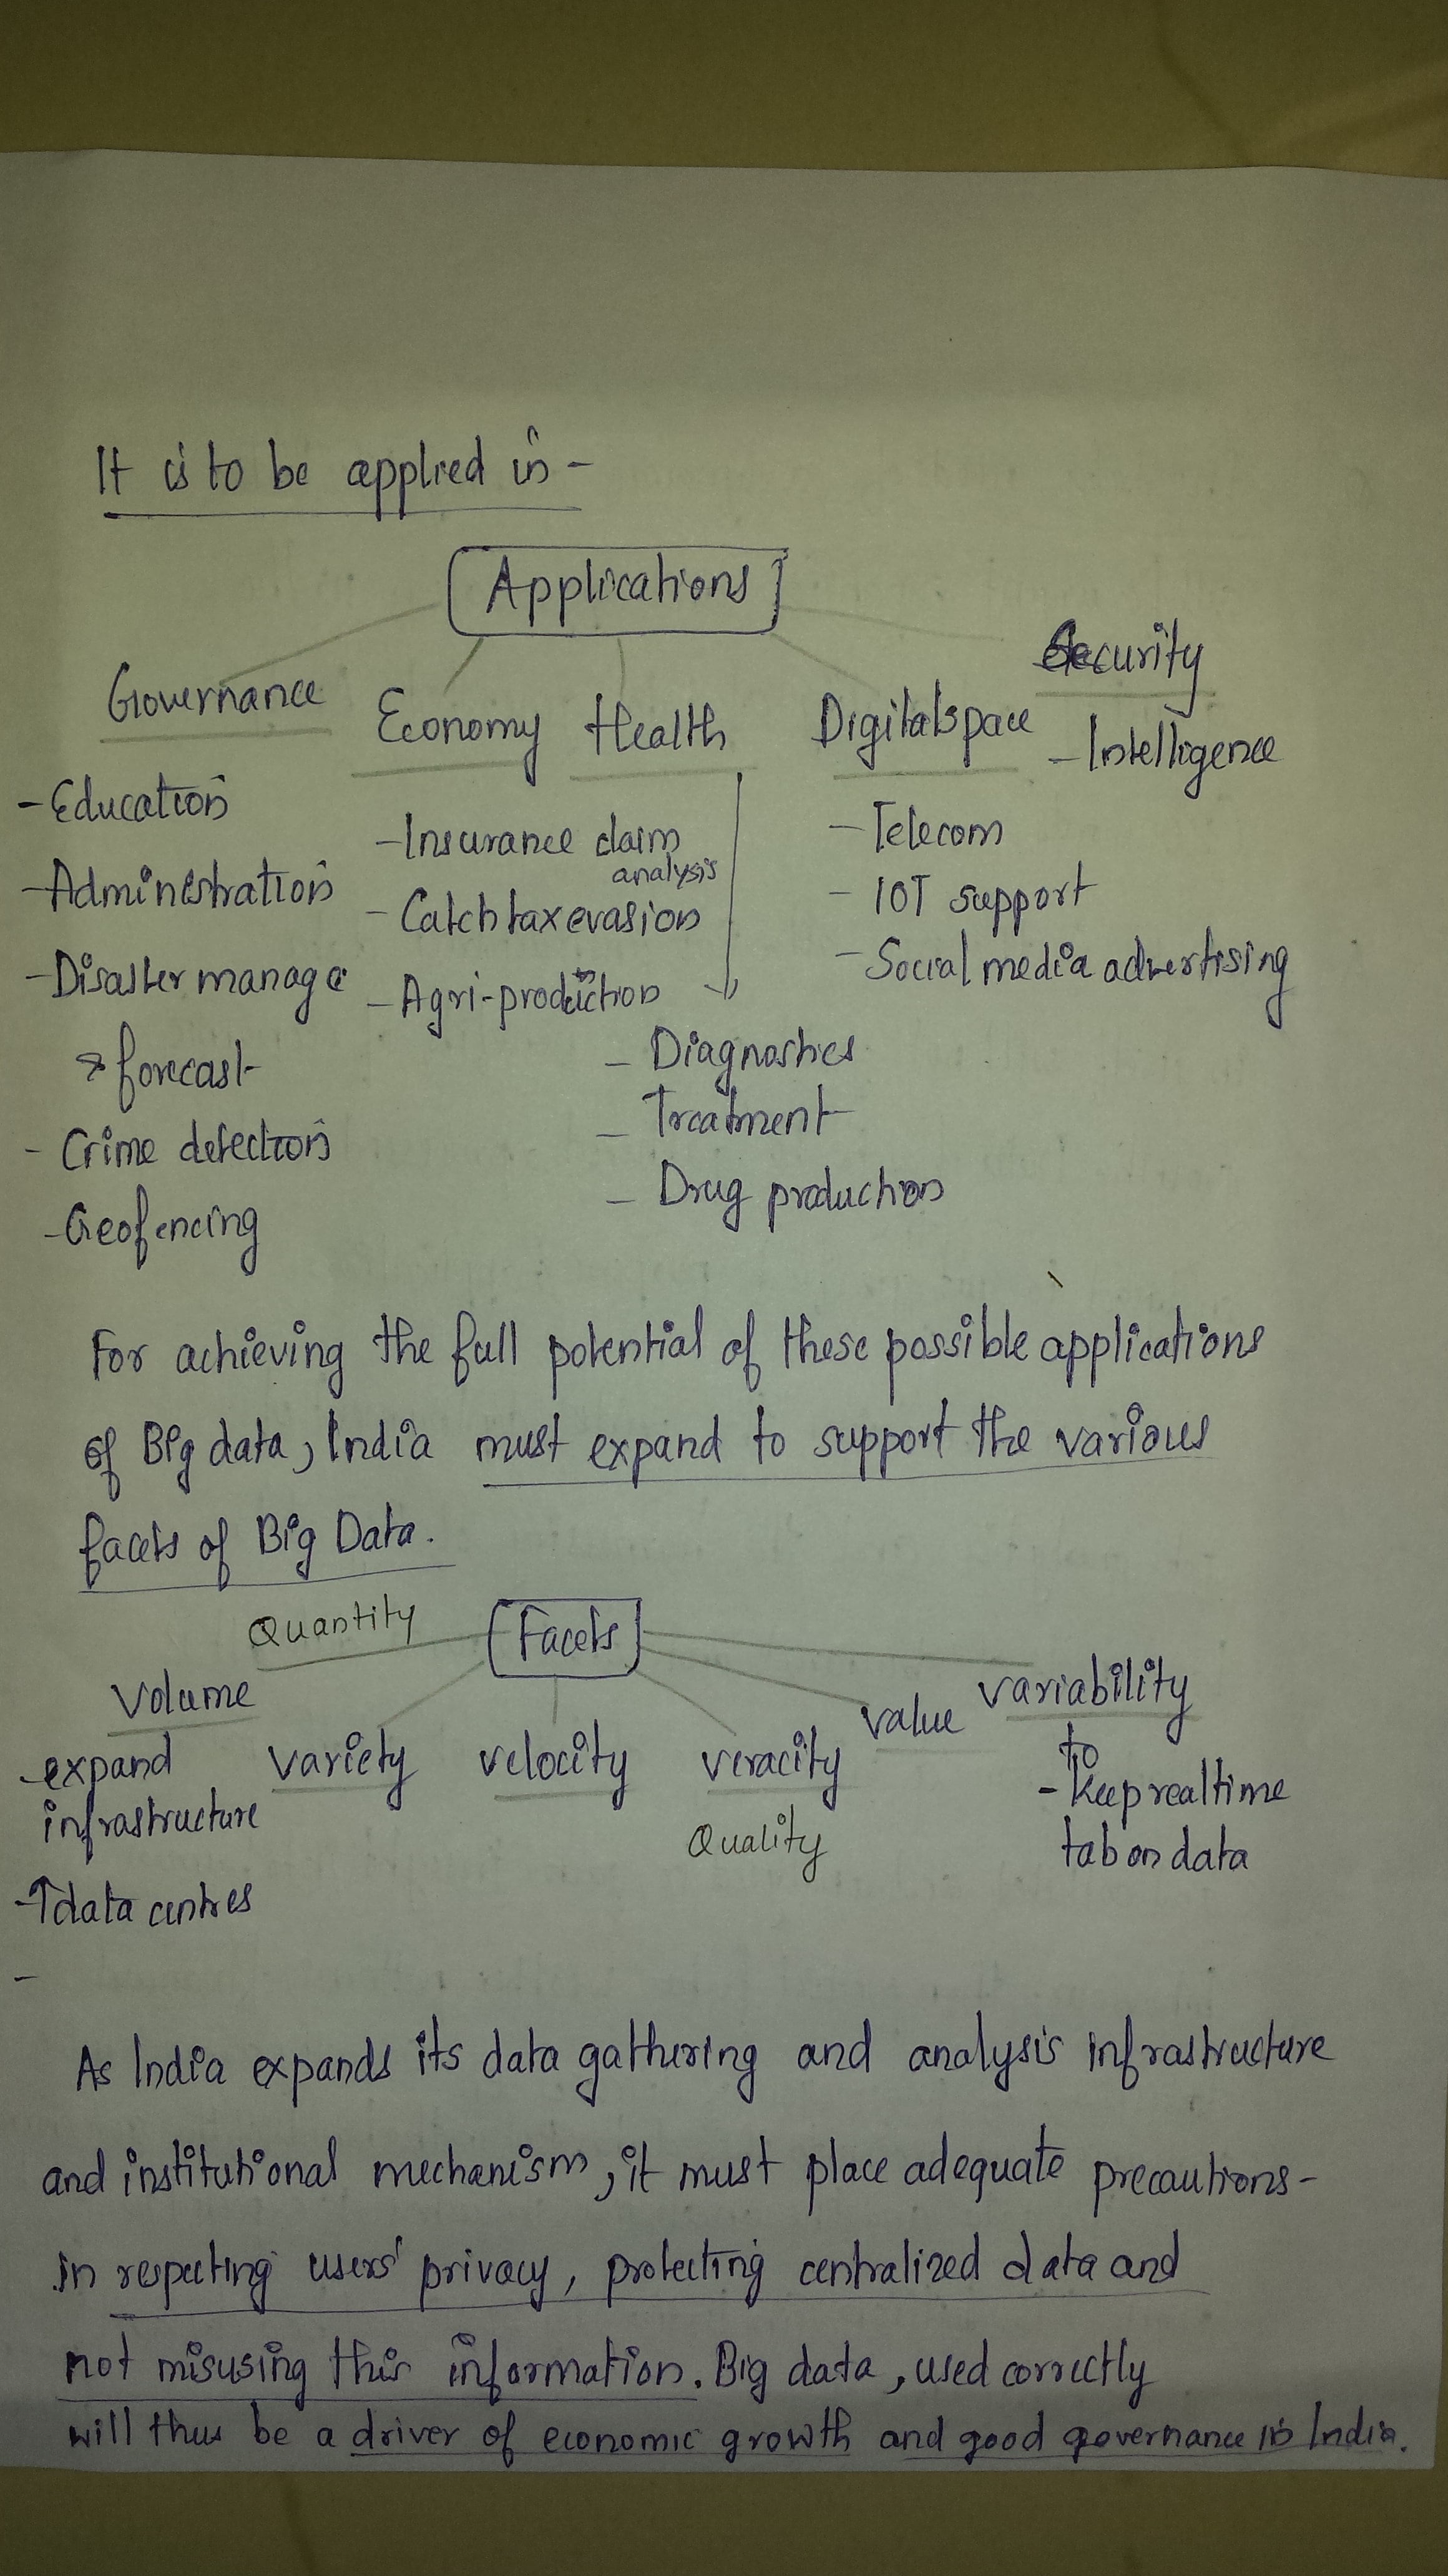 It is to be applied in -
Applications
Governance
Economy
Health
Digitalspace
Security
- Education
- Administration
- Disaster manage
& forecast
- Crime detection
- Geofencing
- Insurance claim
analysis
- Catch tax evasion
- Agri-production
- Diagnostics
- Treatment
- Drug production
- Telecom
- IOT support
- Social media advertising
- Intelligence
For achieving the full potential of these possible applications
of Big data, India must expand to support the various
facets of Big Data.
Quantity
Facets
Volume
- expand
infrastructure
- ↑data centres
-
variety
velocity
veracity
Quality
value
variability
to
- Keep realtime
tab on data
As India expands its data gathering and analysis infrastructure
and institutional mechanism, it must place adequate precautions -
in respecting users' privacy, protecting centralized data and
not misusing this information. Big data, used correctly
will thus be a driver of economic growth and good governance in India.